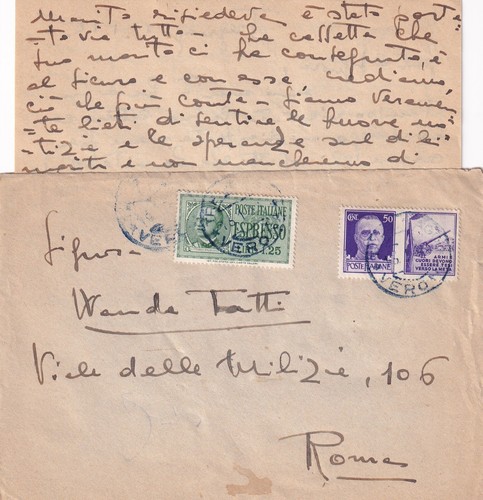 marito risiedeva è stato porta-
-to via tutto - la cassetta che
suo marito ci ha consegnato, è
al sicuro e con essa crediamo,
ciò che più conta - Siamo veramen-
-te lieti di sentire le buone no-
-tizie e le speranze sul di lei
marito e non mancheremo di
POSTE ITALIANE
ESPRESSO
L.1,25
CENT. 50
POSTE ITALIANE
ARMI E
CUORI DEVONO
ESSERE TESI
VERSO LA META
Signora
Wanda Tatti
Viale delle Milizie, 106
Roma